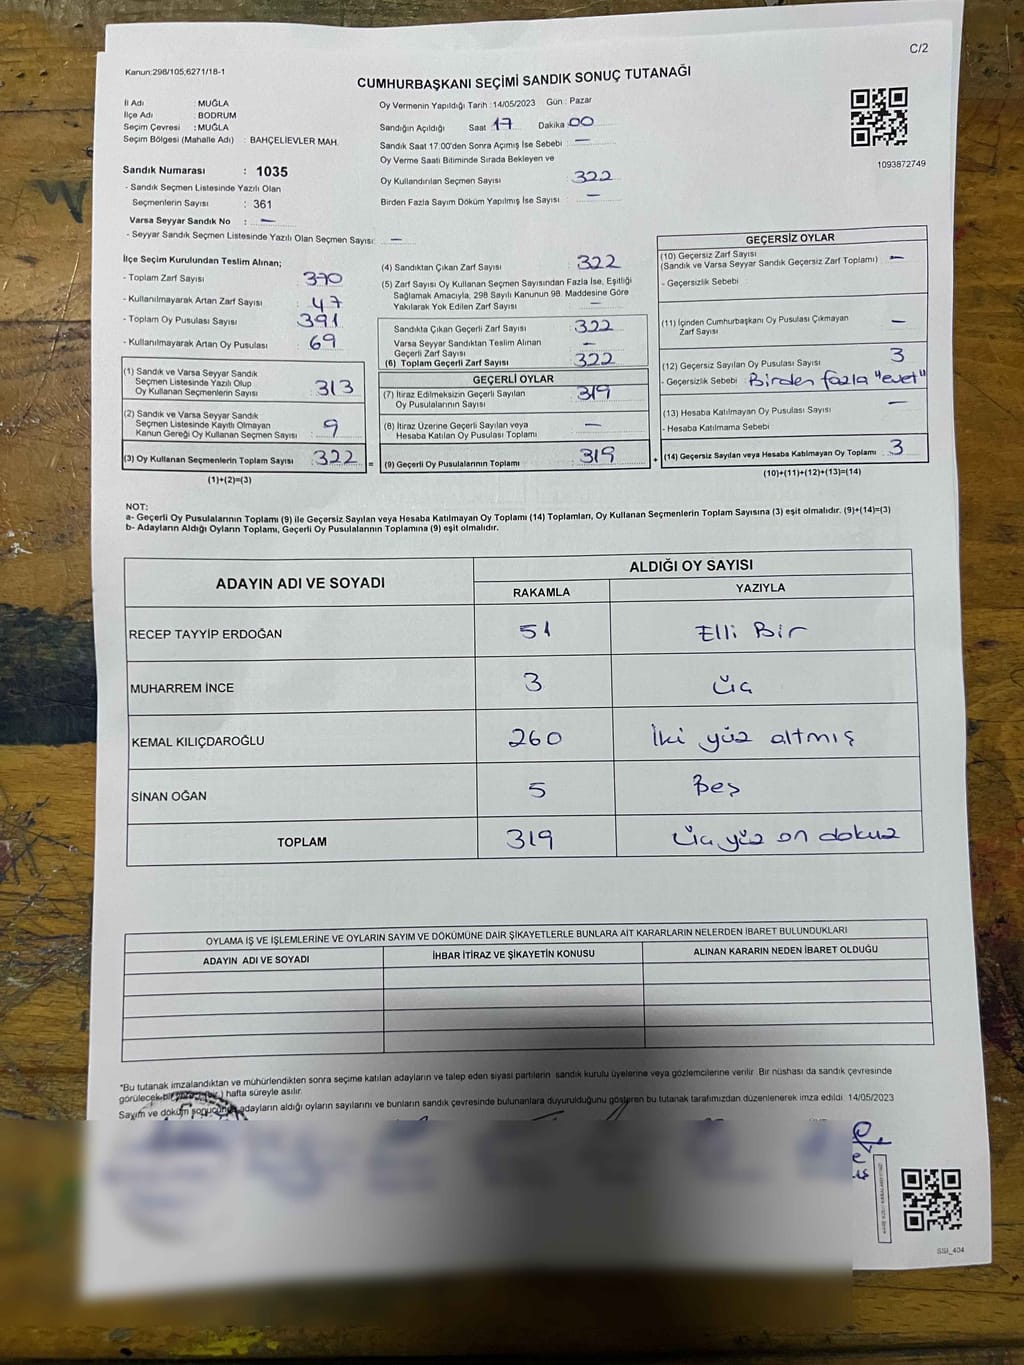 C/2
Kanun:298/105,6271/18-1
CUMHURBAŞKANI SEÇİMİ SANDIK SONUÇ TUTANAĞI
İl Adı : MUĞLA
İlçe Adı : BODRUM
Seçim Çevresi : MUĞLA
Seçim Bölgesi (Mahalle Adı) : BAHÇELİEVLER MAH.
Sandık Numarası : 1035
- Sandık Seçmen Listesinde Yazılı Olan
Seçmenlerin Sayısı : 361
Varsa Seyyar Sandık No : —
- Seyyar Sandık Seçmen Listesinde Yazılı Olan Seçmen Sayısı: —
Oy Vermenin Yapıldığı Tarih : 14/05/2023 Gün : Pazar
Sandığın Açıldığı Saat 17 Dakika 00
Sandık Saat 17:00'den Sonra Açımış İse Sebebi : —
Oy Verme Saati Bitiminde Sırada Bekleyen ve
Oy Kullandırılan Seçmen Sayısı : 322
Birden Fazla Sayım Döküm Yapılmış İse Sayısı : —
1093872749
İlçe Seçim Kurulundan Teslim Alınan;
- Toplam Zarf Sayısı : 370
- Kullanılmayarak Artan Zarf Sayısı : 47
- Toplam Oy Pusulası Sayısı : 391
- Kullanılmayarak Artan Oy Pusulası : 69
(1) Sandık ve Varsa Seyyar Sandık
Seçmen Listesinde Yazılı Olup
Oy Kullanan Seçmenlerin Sayısı : 313
(2) Sandık ve Varsa Seyyar Sandık
Seçmen Listesinde Kayıtlı Olmayan
Kanun Gereği Oy Kullanan Seçmen Sayısı : 9
(3) Oy Kullanan Seçmenlerin Toplam Sayısı : 322 =
(1)+(2)=(3)
(4) Sandıktan Çıkan Zarf Sayısı : 322
(5) Zarf Sayısı Oy Kullanan Seçmen Sayısından Fazla İse, Eşitliği
Sağlamak Amacıyla, 298 Sayılı Kanunun 98. Maddesine Göre
Yakılarak Yok Edilen Zarf Sayısı : —
Sandıkta Çıkan Geçerli Zarf Sayısı : 322
Varsa Seyyar Sandıktan Teslim Alınan
Geçerli Zarf Sayısı : —
(6) Toplam Geçerli Zarf Sayısı : 322
GEÇERLİ OYLAR
(7) İtiraz Edilmeksizin Geçerli Sayılan
Oy Pusulalarının Sayısı : 319
(8) İtiraz Üzerine Geçerli Sayılan veya
Hesaba Katılan Oy Pusulası Toplamı : —
(9) Geçerli Oy Pusulalarının Toplamı : 319 +
GEÇERSİZ OYLAR
(10) Geçersiz Zarf Sayısı
(Sandık ve Varsa Seyyar Sandık Geçersiz Zarf Toplamı) : —
- Geçersizlik Sebebi
(11) İçinden Cumhurbaşkanı Oy Pusulası Çıkmayan
Zarf Sayısı : —
(12) Geçersiz Sayılan Oy Pusulası Sayısı : 3
- Geçersizlik Sebebi : Birden fazla "evet"
(13) Hesaba Katılmayan Oy Pusulası Sayısı : —
- Hesaba Katılmama Sebebi
(14) Geçersiz Sayılan veya Hesaba Katılmayan Oy Toplamı : 3
(10)+(11)+(12)+(13)=(14)
NOT:
a- Geçerli Oy Pusulalarının Toplamı (9) ile Geçersiz Sayılan veya Hesaba Katılmayan Oy Toplamı (14) Toplamları, Oy Kullanan Seçmenlerin Toplam Sayısına (3) eşit olmalıdır. (9)+(14)=(3)
b- Adayların Aldığı Oyların Toplamı, Geçerli Oy Pusulalarının Toplamına (9) eşit olmalıdır.
ADAYIN ADI VE SOYADI
ALDIĞI OY SAYISI
RAKAMLA YAZIYLA
RECEP TAYYİP ERDOĞAN 51 Elli Bir
MUHARREM İNCE 3 üç
KEMAL KILIÇDAROĞLU 260 İki yüz altmış
SİNAN OĞAN 5 Beş
TOPLAM 319 üç yüz on dokuz
OYLAMA İŞ VE İŞLEMLERİNE VE OYLARIN SAYIM VE DÖKÜMÜNE DAİR ŞİKAYETLERLE BUNLARA AİT KARARLARIN NELERDEN İBARET BULUNDUKLARI
ADAYIN ADI VE SOYADI İHBAR İTİRAZ VE ŞİKAYETİN KONUSU ALINAN KARARIN NEDEN İBARET OLDUĞU
*Bu tutanak imzalandıktan ve mühürlendikten sonra seçime katılan adayların ve talep eden siyasi partilerin sandık kurulu üyelerine veya gözlemcilerine verilir. Bir nüshası da sandık çevresinde
görülecek bir hafta süreyle asılır.
Sayım ve döküm sonucunda adayların aldığı oyların sayılarını ve bunların sandık çevresinde bulunanlara duyurulduğunu gösteren bu tutanak tarafımızdan düzenlenerek imza edildi. 14/05/2023
SSI_404